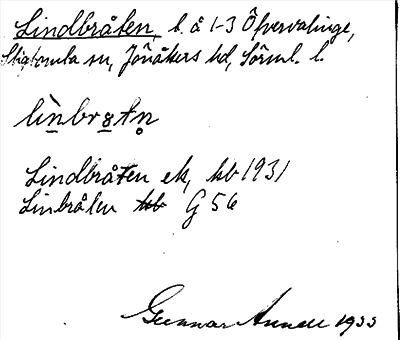 Lindbråten, l. å 1-3 Öfvervalinge,
Stigtomta sn, Jönåkers hd, Sörml. l.
lìnbrətn̥
Lindbråten ek, hb 1931
Linbråten hb G 56
Gunnar Annell 1933